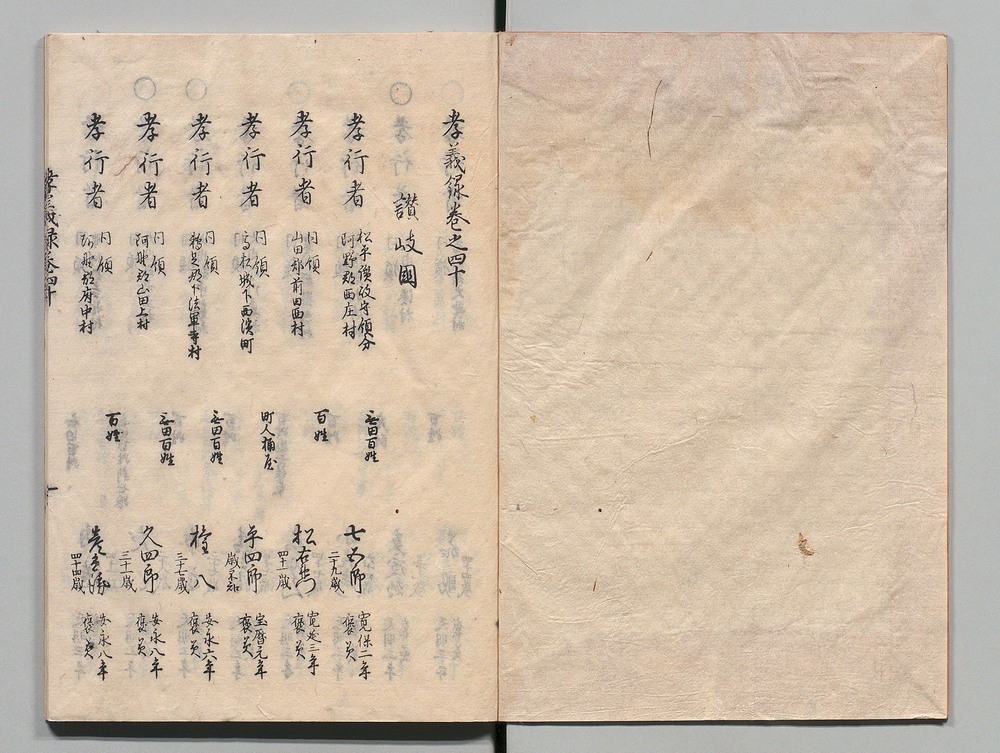 孝義録巻之四十
讃岐國
孝行者
松平讃岐守領分
阿野郡西庄村
無田百姓
七五郎
二十九歳
寛保二年
褒美
孝行者
同領
山田郡前田西村
百姓
松右衛門
四十一歳
寛延三年
褒美
孝行者
同領
高松城下西濱町
町人桶屋
平四郎
歳不知
宝暦元年
褒美
孝行者
同領
鵜足郡下法軍寺村
無田百姓
八
三十七歳
安永六年
褒美
孝行者
同領
阿野郡山田上村
無田百姓
久四郎
三十一歳
安永八年
褒美
孝行者
同領
阿野郡府中村
百姓
四十四歳
安永八年
褒美
孝義録巻四十
一